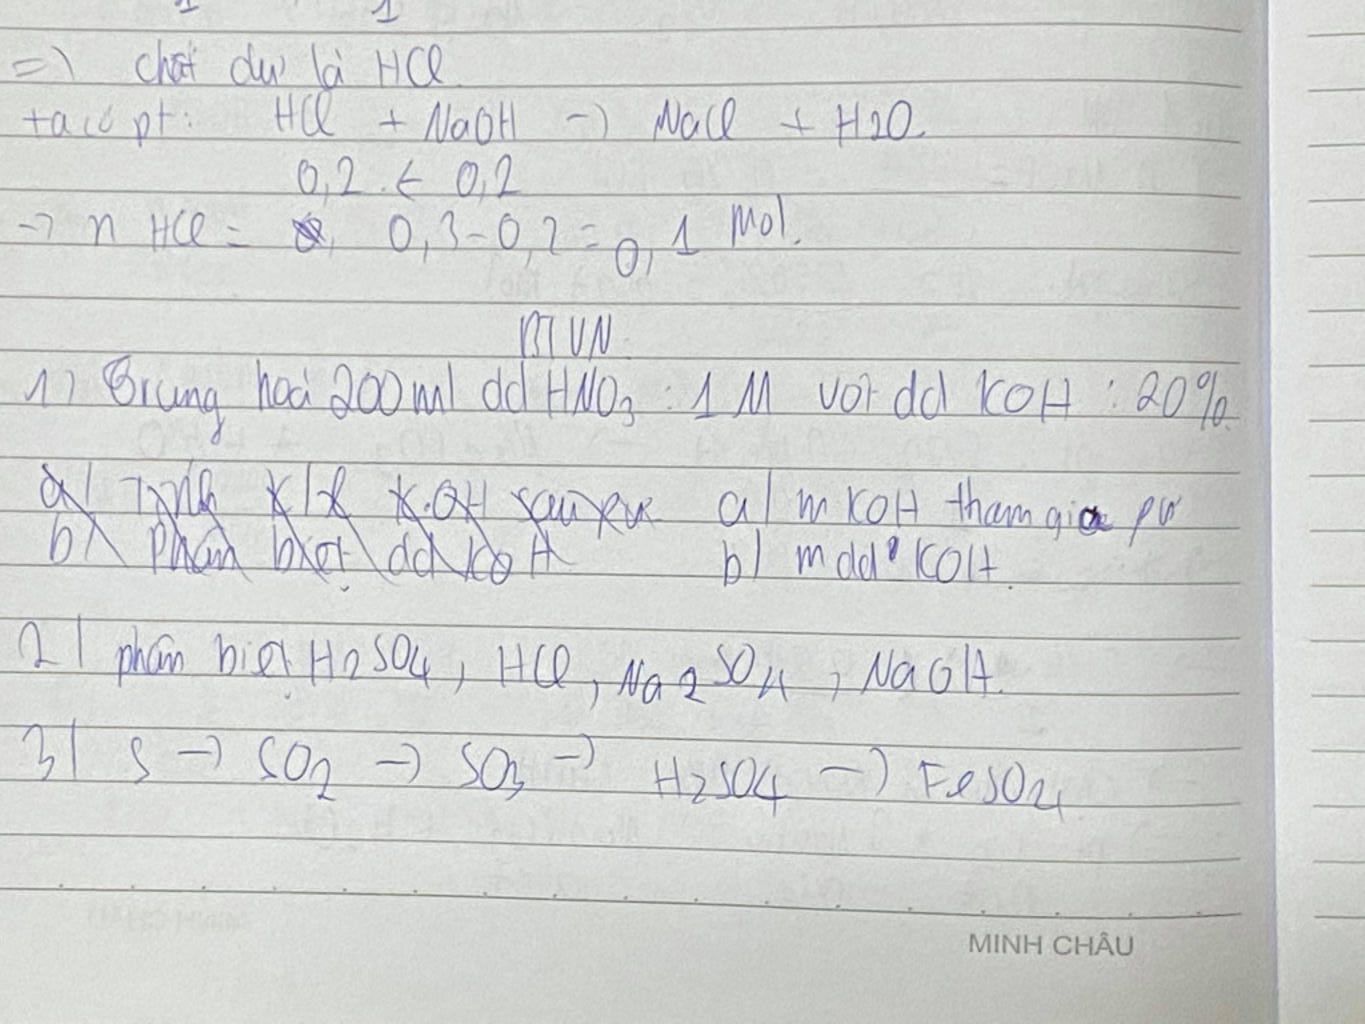 1 1
=> chất dư là HCl
+ta có pt: HCl + NaOH -> NaCl + H2O.
0,2 ← 0,2
-> n HCl = 0,3 - 0,2 = 0,1 mol.
BTVN
1) Trung hoà 200ml dd HNO3 : 1 M với dd KOH : 20%
a) m KOH tham gia pư
b) m dd KOH.
2) phân biệt H2SO4, HCl, Na2SO4, NaOH.
3) S -> SO2 -> SO3 -> H2SO4 -> FeSO4
MINH CHÂU